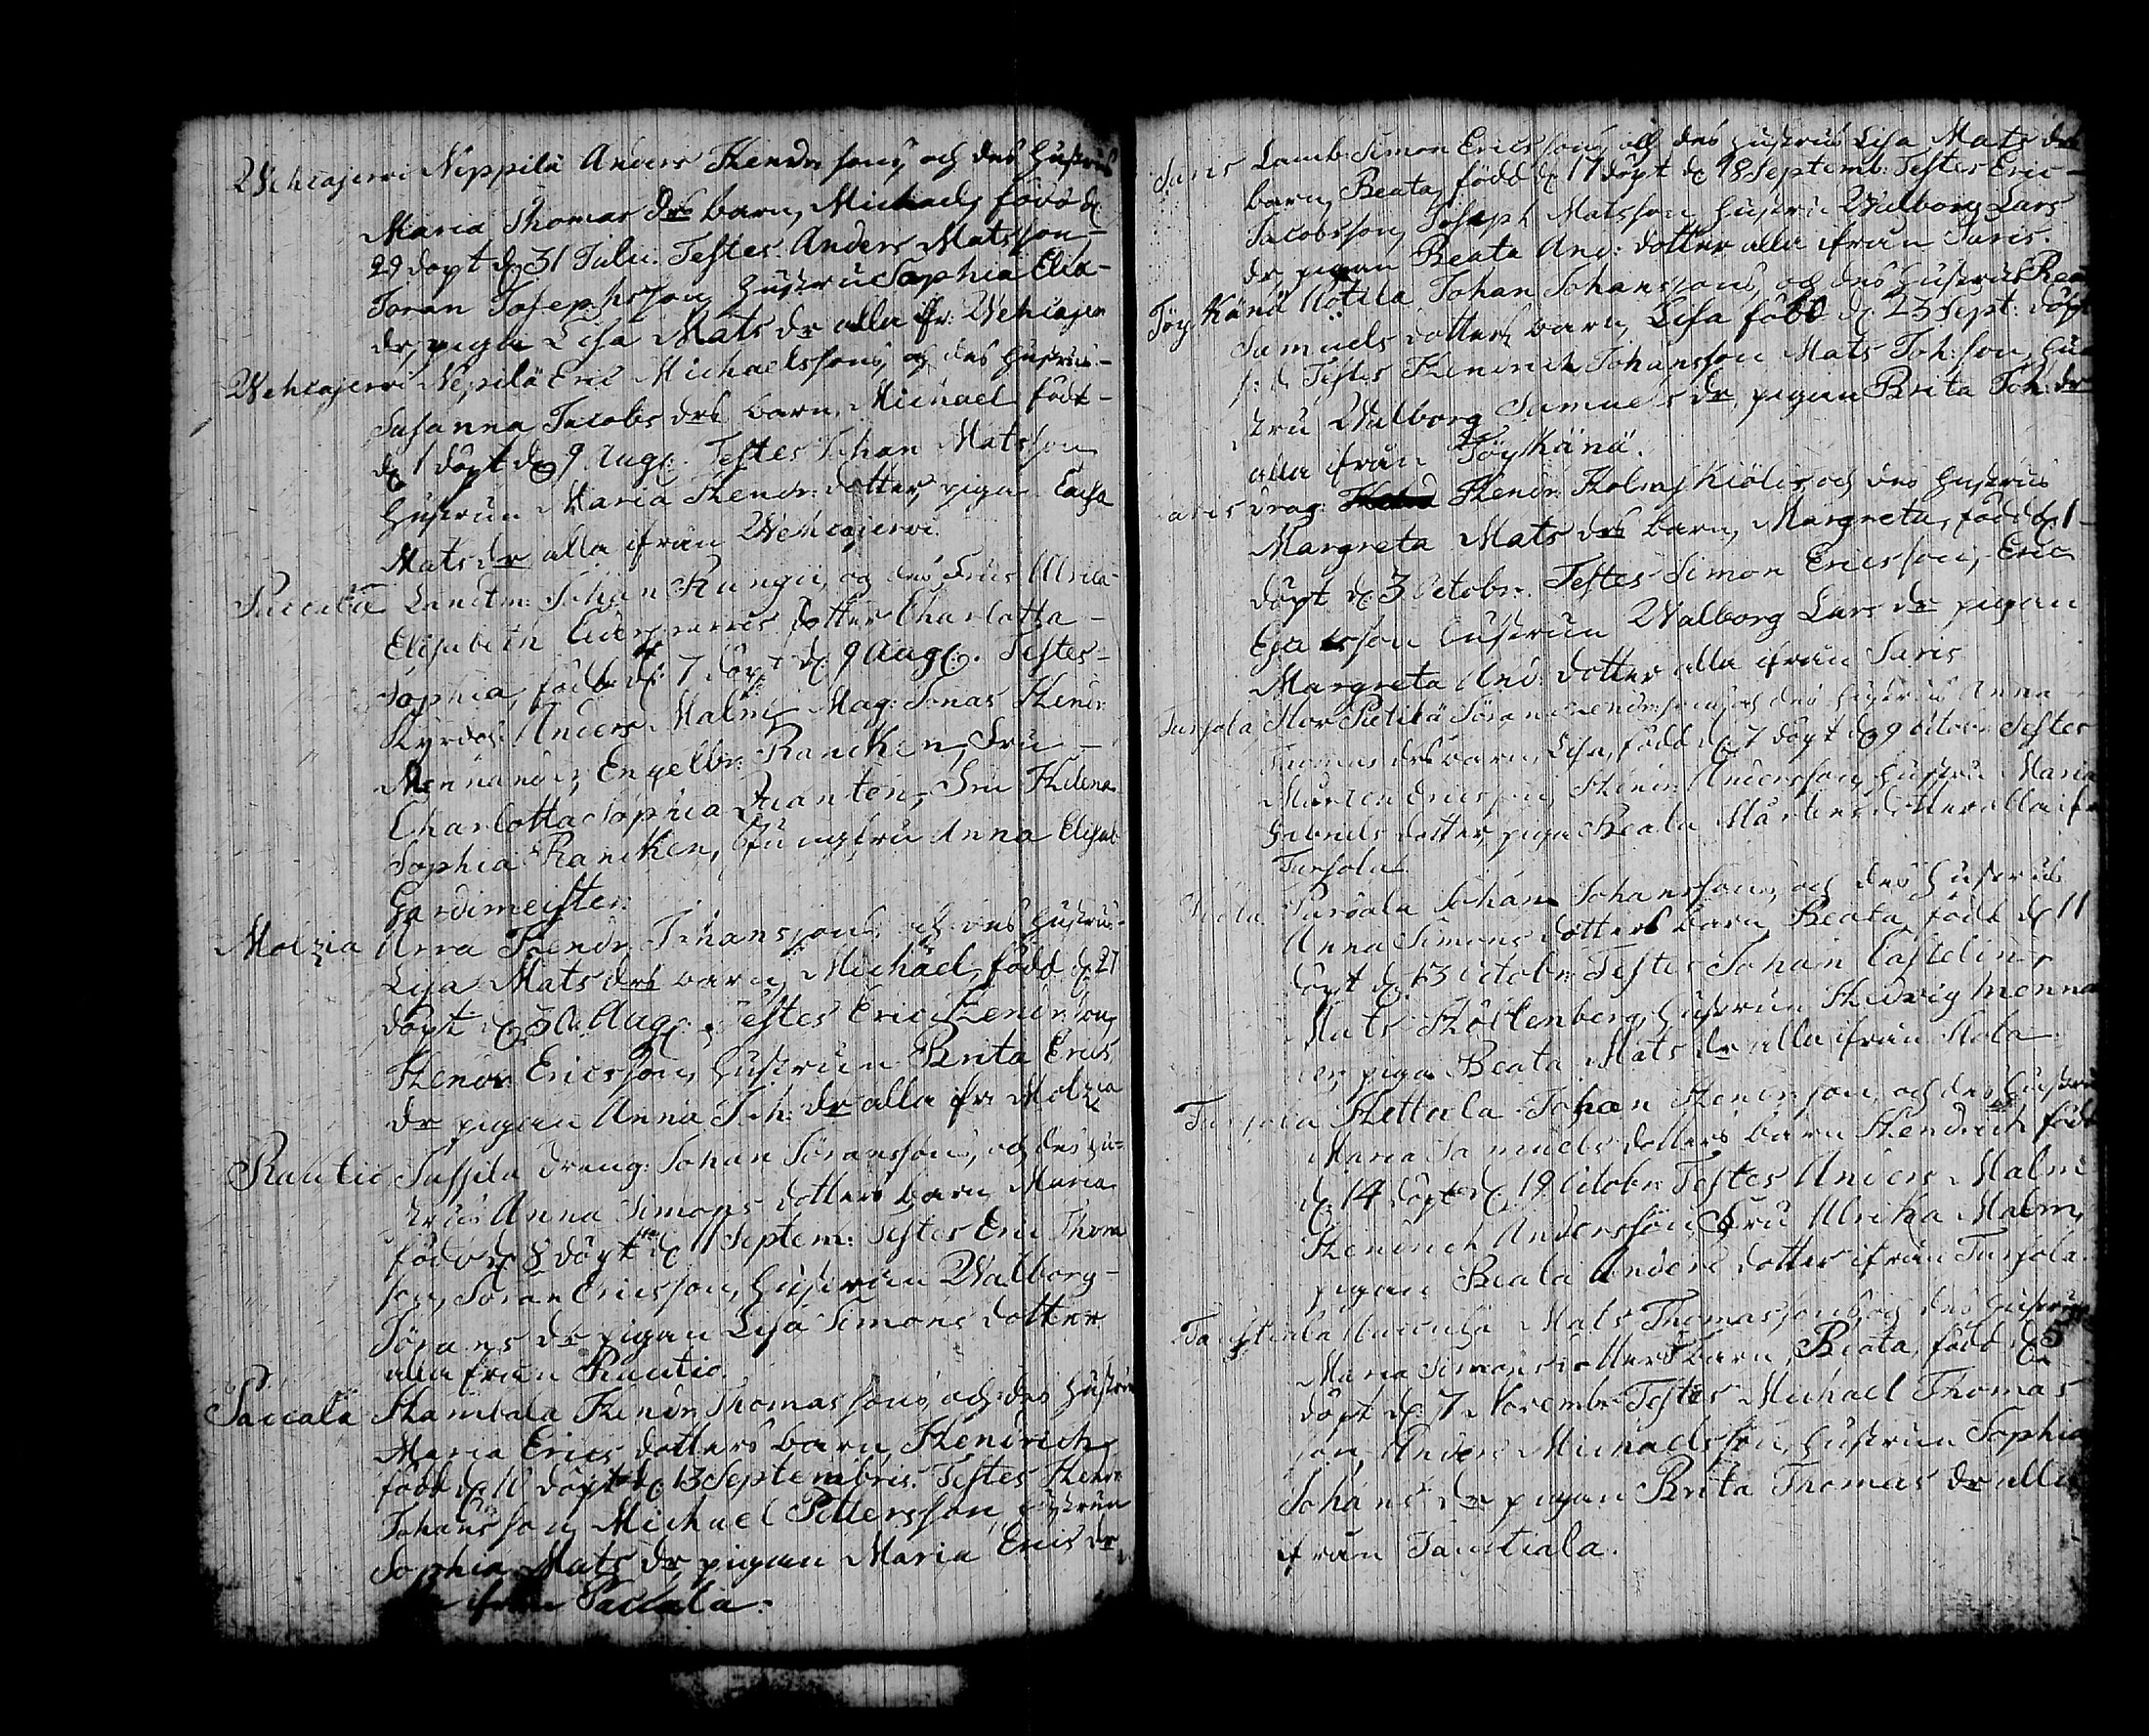 Wehcajerwi Neppilä Anders Hendrssons och des hustrus
Maria Thomas drs barn, Michael, född d:
29 döpt d: 31 Julii. Testes. Anders Matsson,
Jöran Josephsson, hustru Sophia Elia
dr, pigan Lisa Mats dr alla fr: Wehcajer
Wehcajerwi Nepilä Eric Michaelssons, och des hustrus
Susanna Jacobs drs barn, Michael född
d: 1 döpt d: 9 Aug: Testes Johan Matsson
hustrun Maria Hendr: dotter, pigan Caisa
Mats dr alla ifrån Wehcajerwi.
Paccala Landtm: Johan Rungii, och des Frus Ulrica
Elisabeth dotter Charlotta
Sophia, född d: 7 döpt d: 9 Aug: Testes
Kyrdoh: Anders Malm, Mag: Jonas Hendr:
Mennander, Engelbr: Rancken, Fru
Charlotta Sophia Quanten, Fru Helena
Sophia Rancken, Jungfru Anna Elisab:
Gardemeister.
Molzia Urra Hendr: Johanssons och des hustrus
Lisa Mats drs barn, Michäel, född d: 27
döpt d: 30 Aug: Testes Eric Hendrsson,
Hendr: Ericsson, hustrun Brita Erics
dr pigan Anna Joh: dr alla ifr: Molzia
Rautio Suspila dräng: Johan Jöranssons, och des hu-
strus Anna Simons dotters barn, Maria
född d: 8 döpt d: 11 Septem: Testes Eric Thoma
son, Jöran Ericsson, hustrun Walborg
Jörans dr pigan Lisa Simons dotter
alla från Rautio.
Paccala Hambala Hendr: Thomassons och des hustrus
Maria Erics dotters barn, Hendrich
född d: 11 döpt d: 13 Septembris. Testes Hendr:
Johansson, Michael Pettersson, hustrun
Sophia Mats dr, pigan Maria Erics dr
ifrån Paccala.
Saris Lamb: Simon Ericssons, och des hustrus Lisa Mats drs
barn, Beata, född d: 17 döpt d: 18 Septemb: Testes Eric
Jacobsson, Joseph Matsson, hustru Walborg Lars
dr, pigan Beata And: dotter alla ifrån Saris.
Töykänä Uotila Johan Johanssons, och des hustrus Bea
Samuels dotters barn, Lisa född d: 23 Sept: döpt
s: d: Testes Hendrich Johansson Mats Joh:son, hu
stru Walborg Samuels dr, pigan Brita Joh: dr
alla ifrån Töykänä.
aris dräg: Hendr: Holmskiölds och des hustrus
Margreta Mats drs barn, Margreta, född d: 1
döpt d: 3 Octobr: Testes Simon Ericsson, Eric
Esaiasson hustrun Walborg Lars dr pigan
Margreta And: dotter alla ifrån Saris
Tursola Stor Pietilä Jöran Hendrssons, och des hustrus Anna
Thomas drs barn, Lisa, född d: 7 döpt d: 9 Octobr: Testes
Mårten Ericsson, Hendr: Andersson, hustru Maria
Gabriels dotter, pigan Beata Mårtens dotter alla ifr
Tursola.
Skola Pursala Johan Johanssons, och des hustrus
Anna Simons dotters barn Beata, född d: 11
döpt d: 13 Octobr: Testes Johan Castelin,
Mats Höckenberg, hustrun Hedvig Menna
der, pigan Beata Mats dr alla ifrån Skola
Tursola Hettala Johan Hendrsson, och des hustru
Maria Samuels dotters barn Hendrich född
d: 14 döpt d: 19 Octobr: Testes Anders Malm
Hendrich Andersson, Fru Ulrika Malm,
pigan Beata Anders dotter ifrån Tursola.
Tauttiala Mats Thomassons, och des hustrus
Maria Simons dotters barn, Beata, född d: 5
döpt d: 7 Novembr: Testes Michael Thomas
son, Anders Michaelsson, hustrun Sophia
Johans dr pigan Brita Thomas dr alla
ifrån Tauttiala.